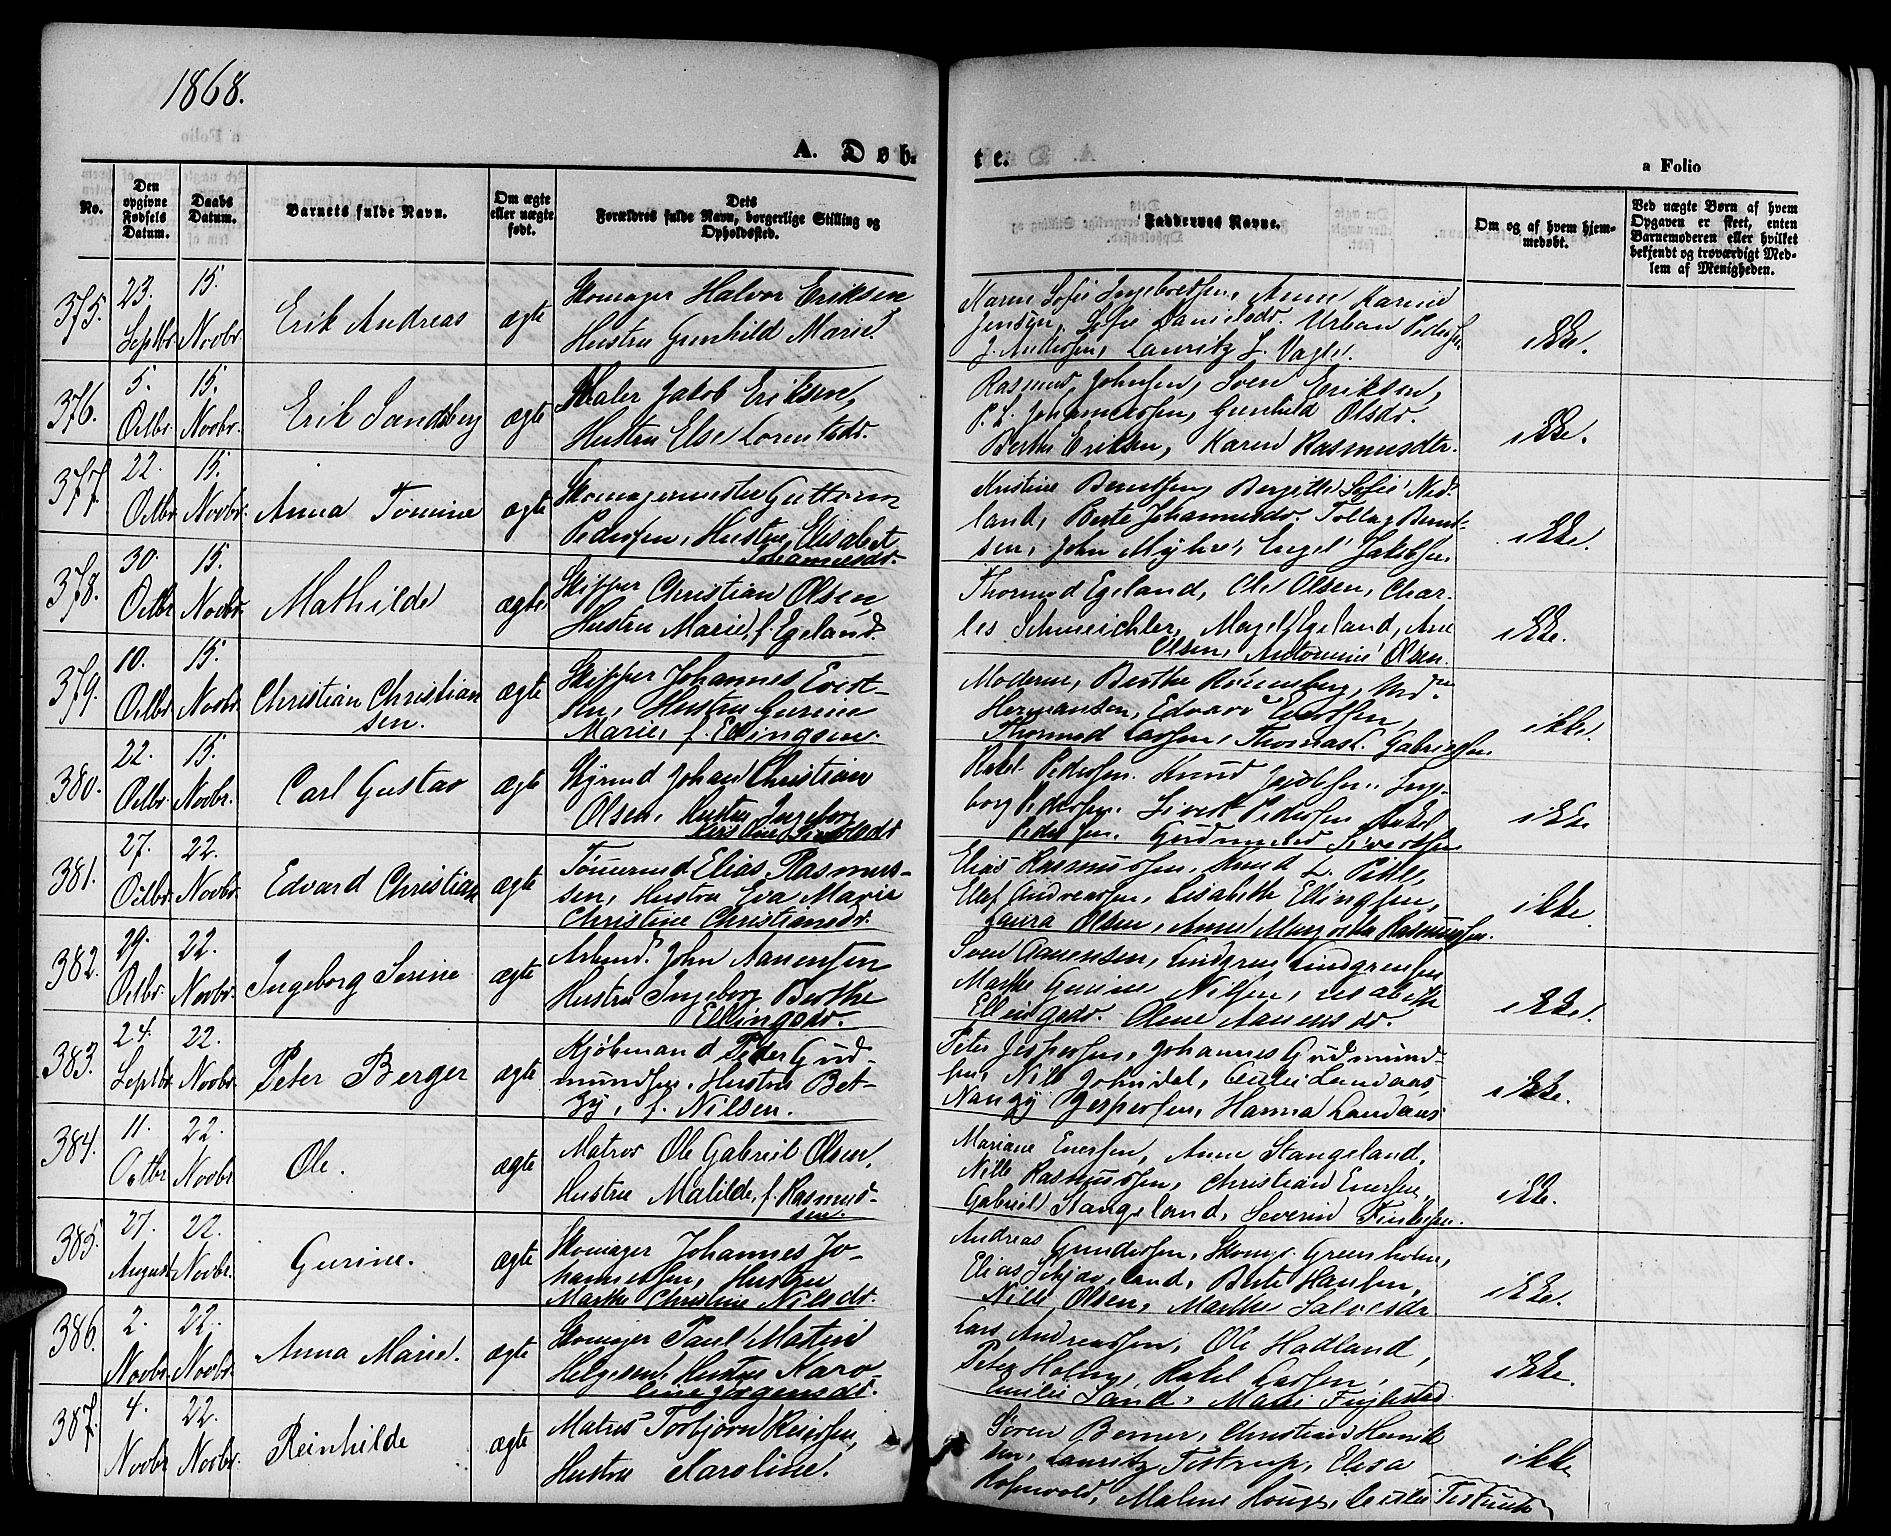 1868.
A. Døb-
te.
a Folio
No.
Den opgivne Fødsels Datum.
Daabs Datum.
Barnets fulde Navn.
Om ægte eller uægte født.
Dets Forældres fulde Navn, borgerlige Stilling og Opholdssted.
Faddernes Navne.
Om og af hvem hjemmedøbt.
Ved uægte Børn af hvem Opgaven er skeet, enten Barnemoderen eller hvilket bekjendt og troværdigt Medlem af Menigheden.
375. 23. Septbr. 15. Novbr. Erik Andreas ægte
Skomager Halvor Eriksen
Hustru Gunhild Marie
Karen Sofie Ingebretsen, Anne Karine
Jensen, Sofie Danielsdr. Urban Pedersen
J. Andersen, Lauritz L. Vagle.
ikke.
376. 5. Octbr. 15. Novbr. Erik Sandberg ægte
Maler Jakob Eriksen,
Hustru Else Lorentsdr.
Rasmus Johnsen, Sven Eriksen,
P. L. Johannessen, Gunhild Olsdr.
Berthe Eriksen, Karen Rasmusdtr.
ikke.
377. 22. Octbr. 15. Novbr. Anna Tomine ægte
Skomagermester Guttorm
Pedersen, Hustru Elisabet
Johannesdr.
Kristine Berntsen, Bergitte Sofie Ned-
land, Berte Johannesdr. Tollag Bernt-
sen, John Myhre, Engel Jakobsen
ikke.
378. 30. Octbr. 15. Novbr. Mathilde ægte
Skipper Christian Olsen
Hustru Marie, f. Egeland.
Thormod Egeland, Ole Olsen, Char-
les Schmeichler, Magel Egeland, Ane
Olsen, Antomine Olsen.
ikke.
379. 10. Octbr. 15. Novbr. Christian Christian
sen.
ægte
Skipper Johannes Evert-
sen, Hustru Gurine
Marie, f. Ellingsen.
Moderen, Berthe Rosenberg, Md.
Hermansen, Edvard Evertsen,
Thormod Larsen, Thomas C. Gabrielsen
ikke.
380. 22. Octbr. 15. Novbr. Carl Gustav ægte
Styrmd Johan Christian
Olsen, Hustru Ingeborg
Rakel Pedersen. Knud Jacobsen. Inge-
borg Pedersen. Sivert Pedersen Rakel
Pedersen. Gudmund Sivertsen
ikke
381. 27. Octbr. 22. Novbr. Edvard Christian ægte
Tømermd Elias Rasmus-
sen, Hustru Eva Marie
Christine Christiansdr.
Elias Rasmussen, Knud L.
Elef Andreassen, Lisabeth Ellingsen,
Laura Olsen, Anne Margrethe Rasmussen.
ikke
382. 29. Octbr. 22. Novbr. Ingeborg Serine ægte
Arbmd. John Aanensen
Hustru Ingeborg Berthe
Ellingsdr.
Sven Aanensen, Lindgren Lindgrensen
Marthe Gurine Nilsen, Lisabeth
Ellingsdr. Olene Aanensdr.
ikke!
383. 24. Septbr. 22. Novbr. Peter Berger ægte
Kjøbmand Peder Gud-
mundsen. Hustru Bet-
zy, f. Nilsen.
Peter Jespersen, Johannes Gudmund-
sen, Nils Johndal, Cecilie Landaas,
Nangy Jespersen, Hanna Landaas
ikke.
384. 11. Octbr. 22. Novbr. Ole. ægte
Matros Ole Gabriel Olsen,
Hustru Matilde, f. Rasmus-
sen.
Mariane Enersen, Anne Stangeland,
Nille Rasmussen, Christian Enersen,
Gabriel Stangeland, Severin Finkelsen.
ikke.
385. 27. August 22. Novbr. Gurine. ægte
Skomager Johannes Jo-
hannessen, Hustru
Marthe Christine Nilsdr.
Andreas Gundersen, Skomgr. Greenholm,
Elias Schjæveland, Berte Hansen,
Nille Olsen, Marthe Salvesdr
ikke.
386. 2. Novbr. 22. Novbr. Anna Marie. ægte
Skomager Paul Matin
Helgesen, Hustru Karo
line Jørgensdr.
Lars Andreassen, Ole Hadland,
Peter Holm, Rakel Larsen,
Emilie Sand, Marie
ikke.
387. 4. Novbr. 22. Novbr. Reinhilde ægte
Matros Torbjørn Reiersen,
Hustru Karoline.
Søren Berner, Christian Henrik
sen, Lauritz Tistrup, Elisa
Rosenvold, Malene Houge, Cecilie Testrup
ikke